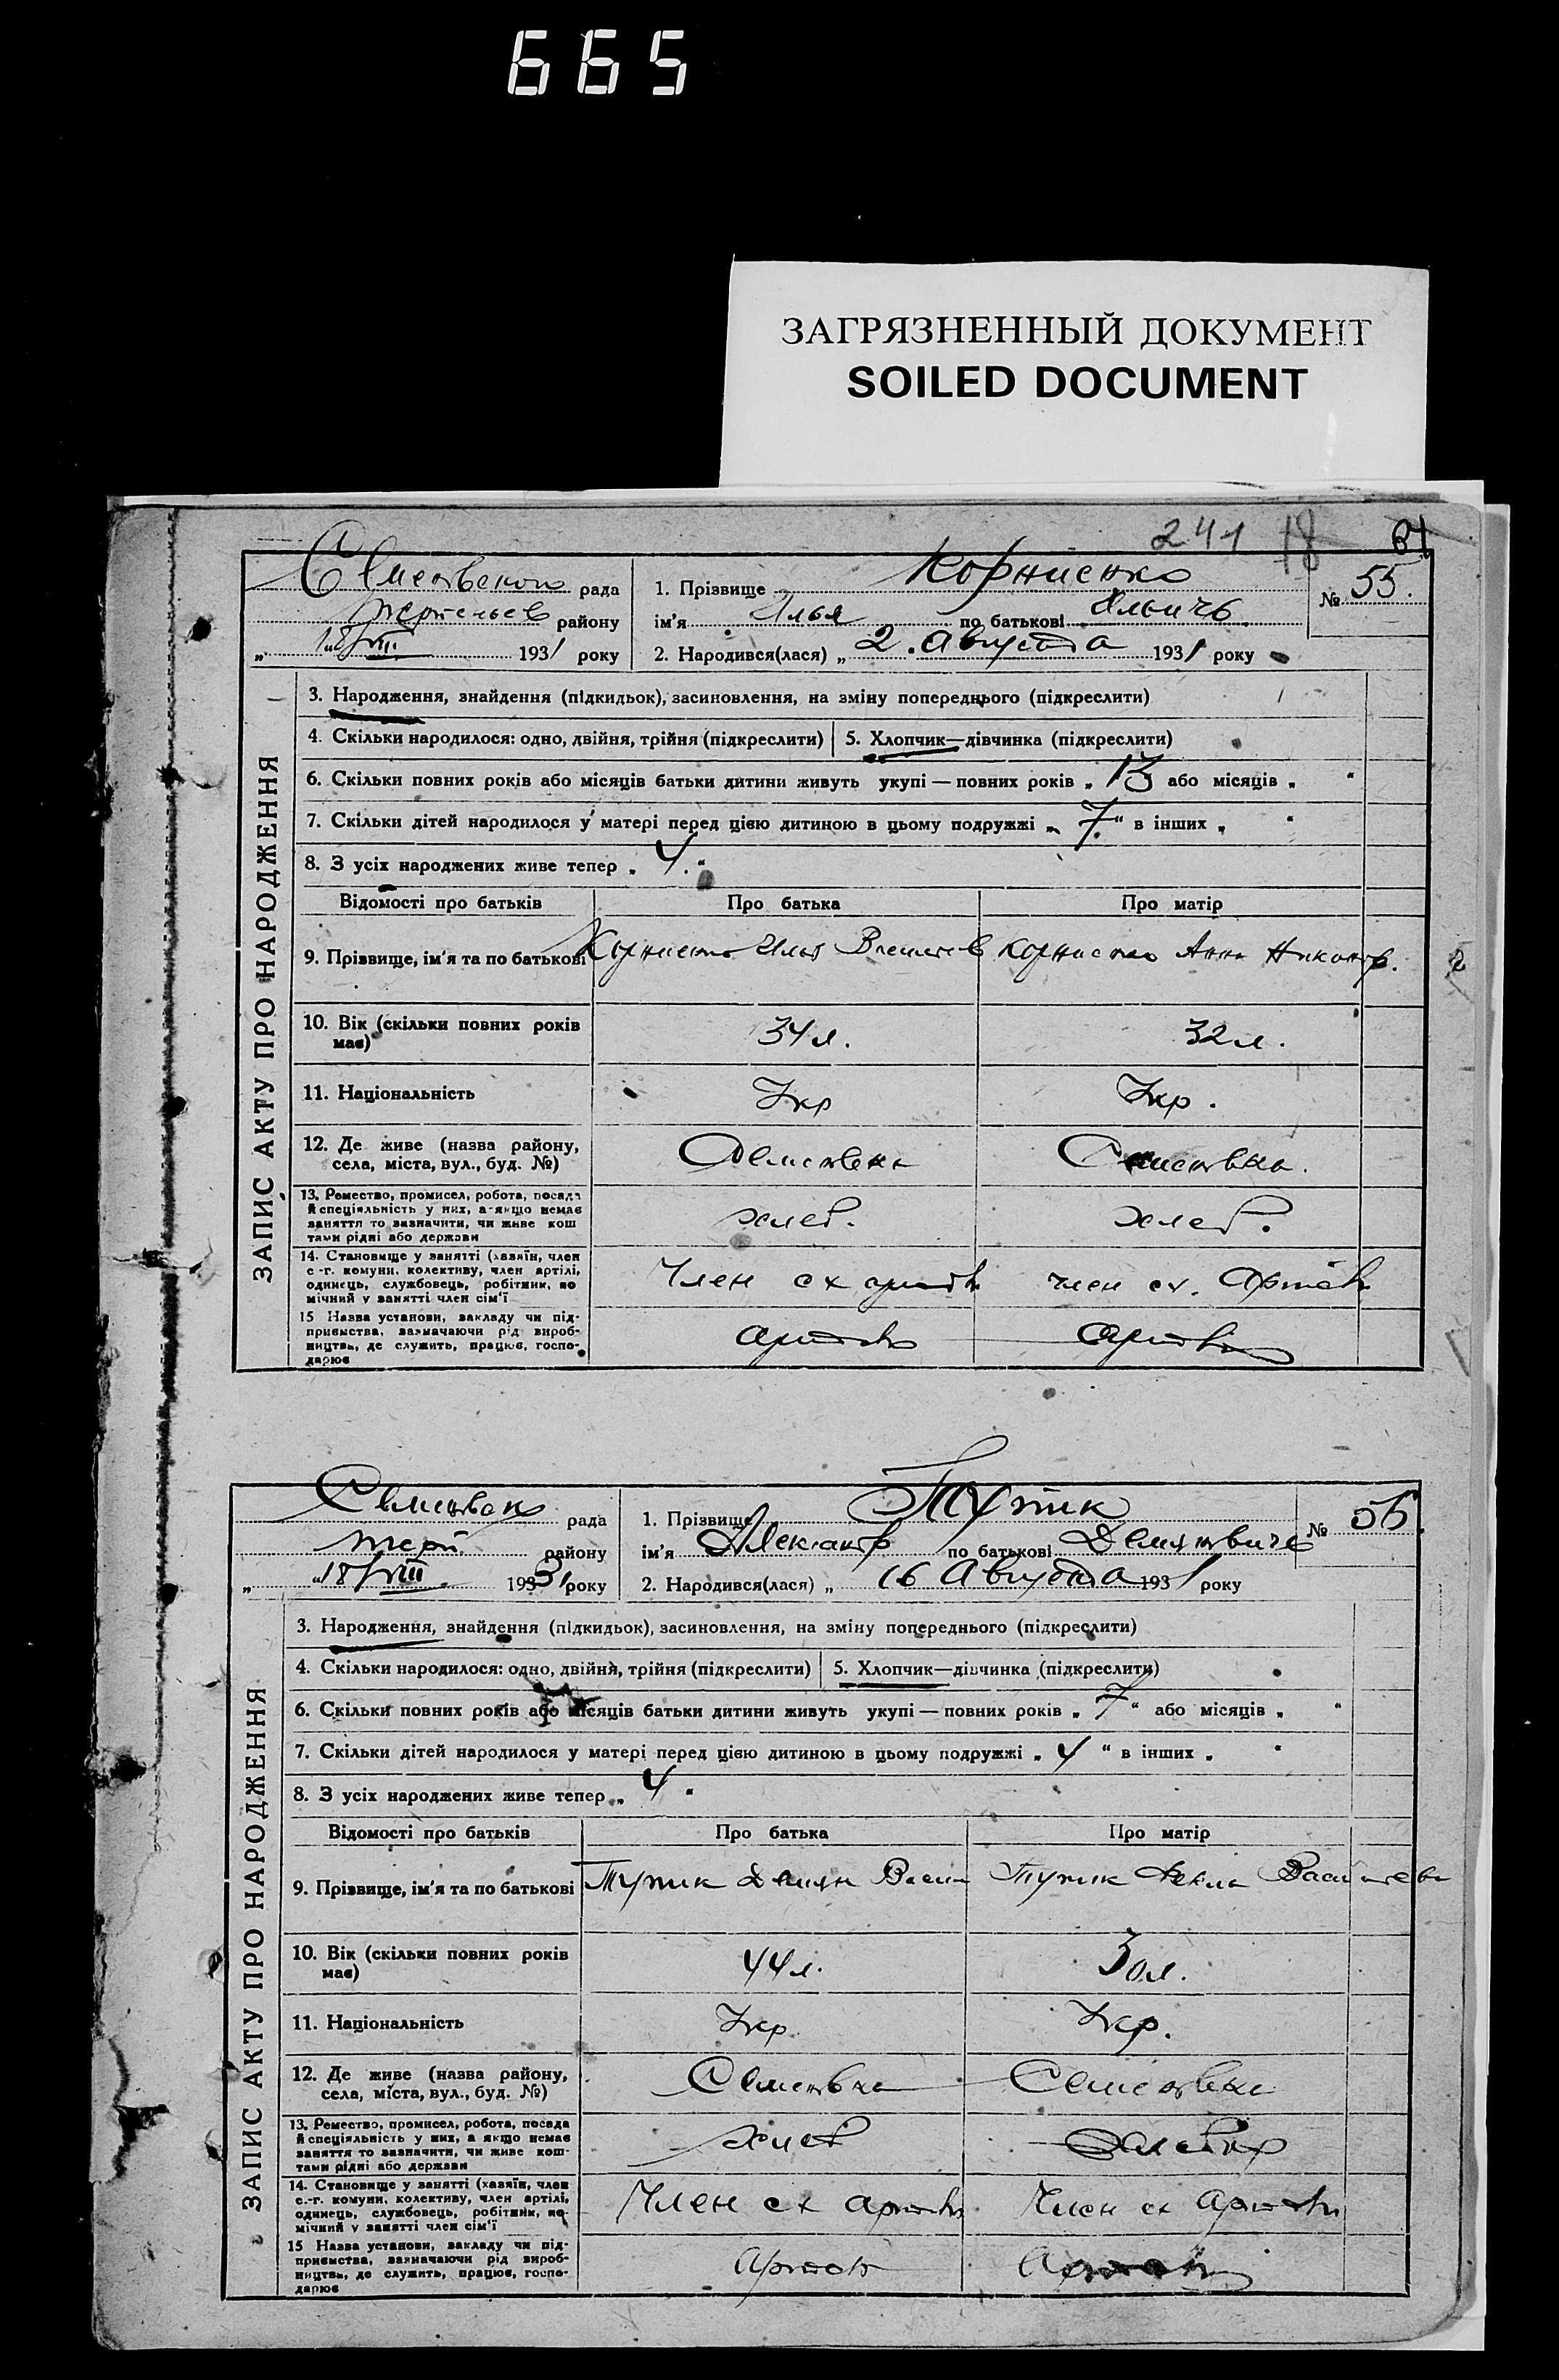 665
ЗАГРЯЗНЕННЫЙ ДОКУМЕНТ
SOILED DOCUMENT
241 18
рада
району
18/VIII. 1931 року
1. Прізвище Корниенко
ім'я Илья по батькові Ильичъ
2. Народився(лася) „ 2. Августа 1931 року
№ 55.
ЗАПИС АКТУ ПРО НАРОДЖЕННЯ
3. Народження, знайдення (підкидьок), засиновлення, на зміну попереднього (підкреслити)
4. Скільки народилося: одно, двійня, трійня (підкреслити) 5. Хлопчик—дівчинка (підкреслити)
6. Скільки повних років або місяців батьки дитини живуть укупі — повних років „ 13 або місяців „ “
7. Скільки дітей народилося у матері перед цією дитиною в цьому подружжі „ 7. “ в інших „ “
8. З усіх народжених живе тепер „ 4. “
Відомості про батьків Про батька Про матір
9. Прізвище, ім'я та по батькові Корниенко Илья Корниенко Анна Никанор.
10. Вік (скільки повних років
має) 34 л. 32 л.
11. Національність Укр Укр.
12. Де живе (назва району,
села, міста, вул., буд. №) Семеновка Семеновка.
13. Ремество, промисел, робота, посада
й спеціяльність у них, а якщо немає
заняття то зазначити, чи живе кош
тами рідні або держави хлеб. хлеб.
14. Становище у занятті (хазяїн, член
с -г. комуни, колективу, член артілі,
одинець, службовець, робітник, по
мічний у занятті член сім'ї Член сх артели член сх. Артели
15 Назва установи, закладу чи під-
приємства, зазначаючи рід вироб-
ництва, де служить, працює, госпо-
дарює артель Артель
рада
терп. району
„ 18/VIII. 1931 року
1. Прізвище Тупик
ім'я Александр по батькові Демяновичъ
2. Народився(лася) „ 16 Августа 1931 року
№ 56.
ЗАПИС АКТУ ПРО НАРОДЖЕННЯ
3. Народження, знайдення (підкидьок), засиновлення, на зміну попереднього (підкреслити)
4. Скільки народилося: одно, двійня, трійня (підкреслити) 5. Хлопчик—дівчинка (підкреслити)
6. Скільки повних років або місяців батьки дитини живуть укупі — повних років „ 7 “ або місяців „ “
7. Скільки дітей народилося у матері перед цією дитиною в цьому подружжі „ 4 “ в інших „ “
8. З усіх народжених живе тепер „ 4 “
Відомості про батьків Про батька Про матір
9. Прізвище, ім'я та по батькові Тупик Демян Васил Тупик Фекла Васильевн
10. Вік (скільки повних років
має) 44 л. 30 л.
11. Національність Укр. Укр.
12. Де живе (назва району,
села, міста, вул., буд. №) Семеновка Семеновка
13. Ремество, промисел, робота, посада
й спеціяльність у них, а якщо немає
заняття то зазначити, чи живе кош-
тами рідні або держави хлеб хлебор
14. Становище у занятті (хазяїн, член
с.-г. комуни, колективу, член артілі,
одинець, службовець, робітник, по-
мічний у занятті член сім'ї Член сх артели Член сх Артели
15 Назва установи, закладу чи під-
приємства, зазначаючи рід вироб-
ництва, де служить, працює, госпо-
дарює Артель Артель